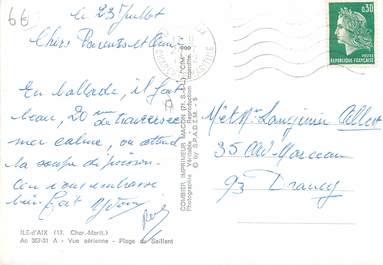 66
le 23 Juillet
Chers Parents et
En ballade, il fait
beau, 20 mn de traversée
mer calme, on attend
la soupe de poisson.
On vous embrasse
bien fort
ILE-d'AIX (17. Char.-Marit.)
Ao 307-31 A - Vue aérienne - Plage du Saillant
COMBIER IMPRIMEUR MACON (71. S.-&-L.) "CIM"
Photographie Véritable - Reproduction Interdite
© by S.P.A.D.E.M.
0,30
POSTES
REPUBLIQUE FRANÇAISE
Mr et Me Langinieu Albert
35 Av Marceau
93 Drancy